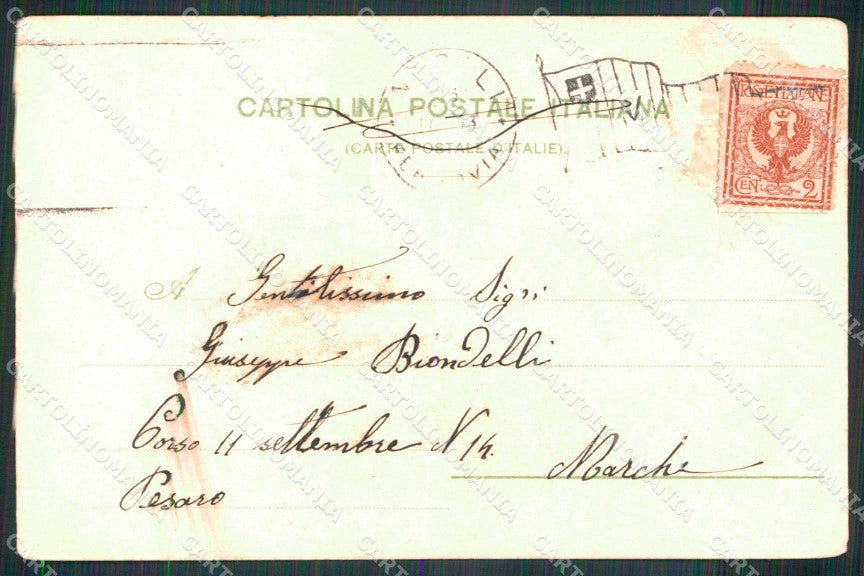 CARTOLINA POSTALE ITALIANA
(CARTE POSTALE D'ITALIE).
POSTE ITALIANE
CEN. 2
A Gentilissimo Sigri
Giuseppe Biondelli
Corso 11 settembre N 14.
Marche
Pesaro
CARTOLINOMANIA